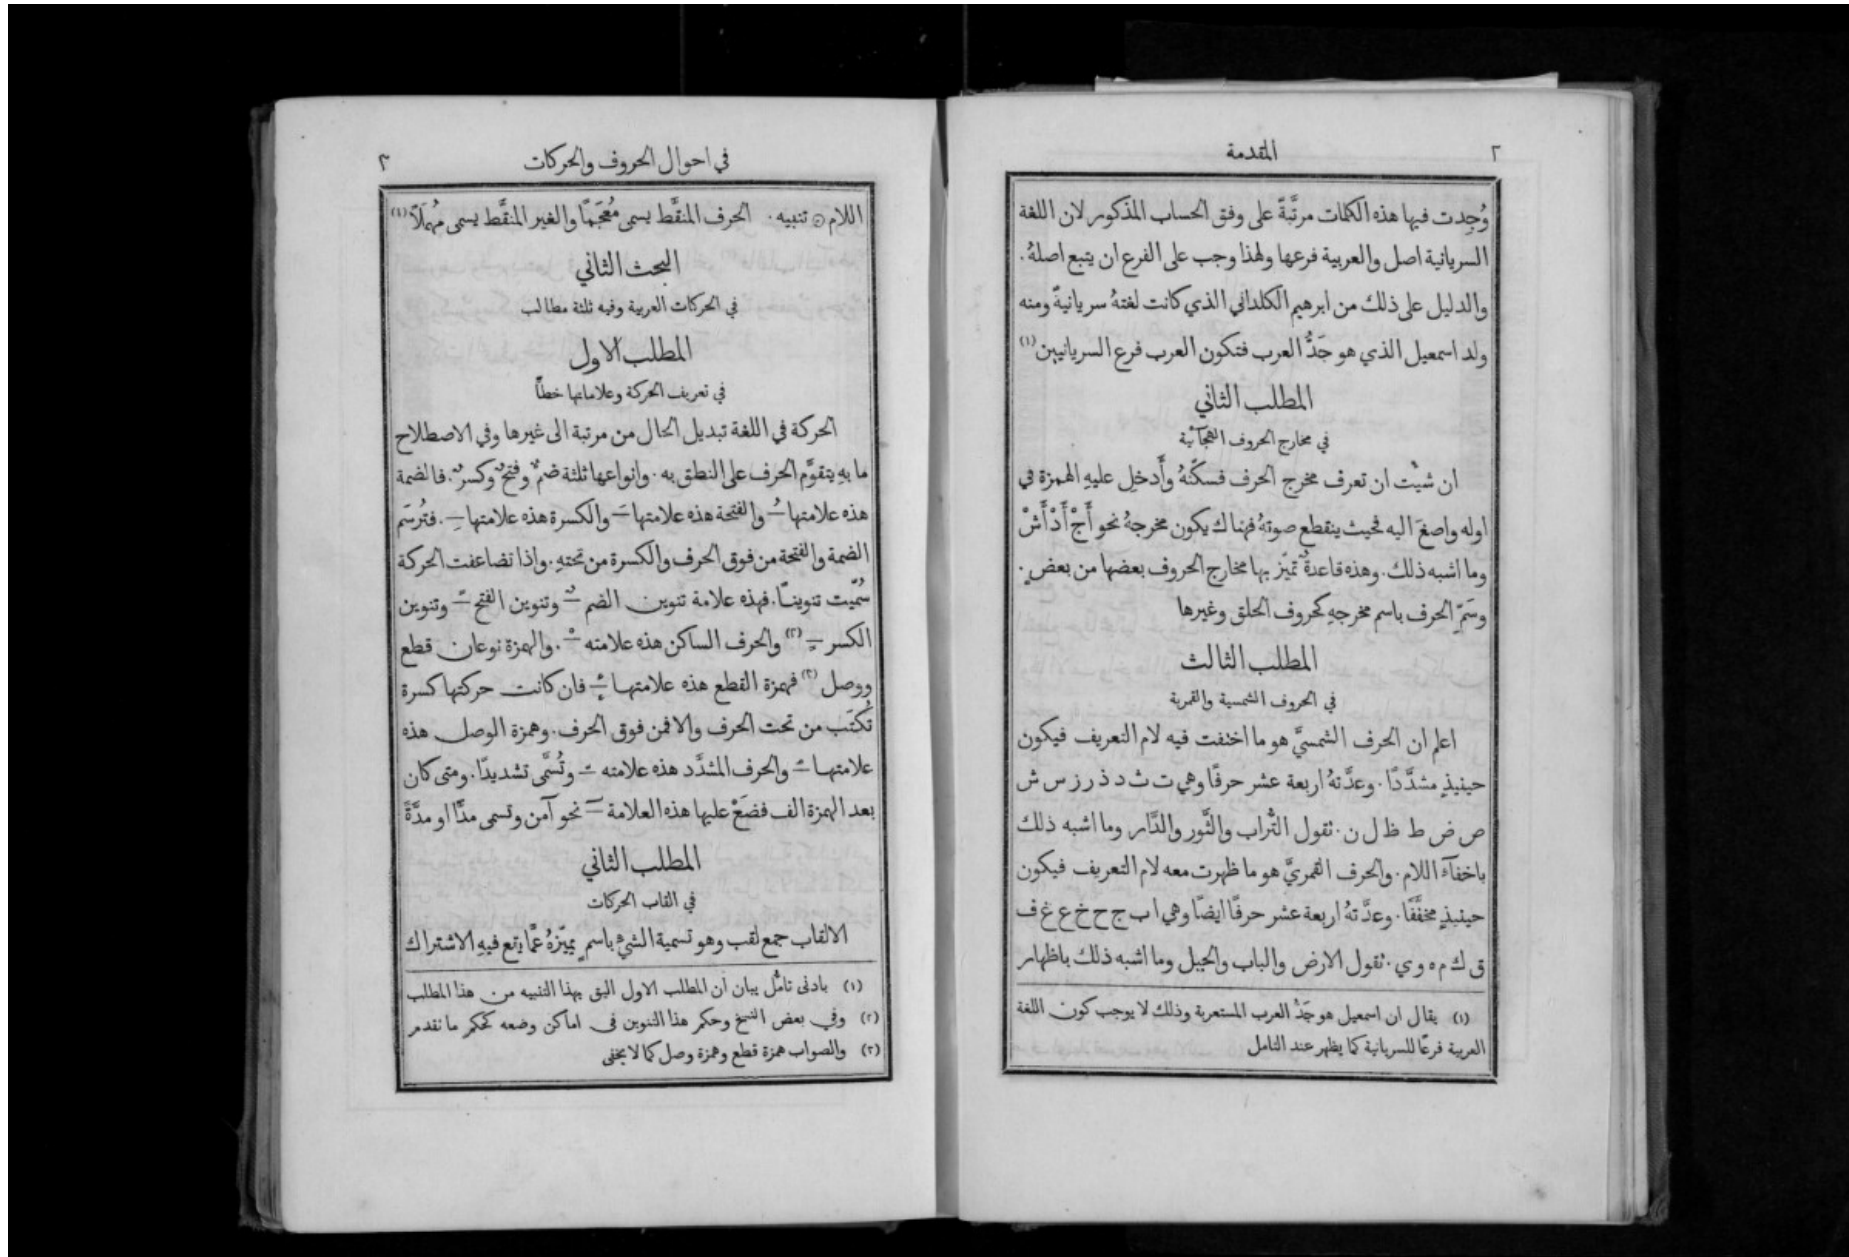 المقدمة
٢
وُجِدت فيها هذه الكلمات مرتَّبةً على وفق الحساب المذكور لان اللغة
السريانية اصل والعربية فرعها ولهذا وجب على الفرع ان يتبع اصلهُ.
والدليل على ذلك من ابرهيم الكلداني الذي كانت لغتهُ سريانيةً ومنه
ولد اسمعيل الذي هو جَدُّ العرب فتكون العرب فرع السريانيين (١)
المطلب الثاني
في مخارج الحروف الهجآئية
ان شيْت ان تعرف مخرج الحرف فسكّنهُ وأَدخِل عليهِ الهمزة في
اوله واصغَ اليه فحيث ينقطع صوتهُ فهناك يكون مخرجهُ نحو أَجْ أَدْ أَشْ
وما اشبه ذلك. وهذه قاعدةٌ تميّز بها مخارج الحروف بعضها من بعضٍ.
وسَمِّ الحرف باسم مخرجهِ كحروف الحلق وغيرها
المطلب الثالث
في الحروف الشمسية والقمرية
اعلم ان الحرف الشمسيَّ هو ما اختفت فيه لام التعريف فيكون
حينيذٍ مشدَّدًا. وعدَّتهُ اربعة عشر حرفًا وهي ت ث د ذ ر ز س ش
ص ض ط ظ ل ن. تقول التُّراب والثَّور والدَّار وما اشبه ذلك
باخفآء اللام. والحرف القمريَّ هو ما ظهرت معه لام التعريف فيكون
حينيذٍ مخفَّفًا. وعدَّتهُ اربعة عشر حرفًا ايضًا وهي ا ب ج ح خ ع غ ف
ق ك م ه و ي. تقول الارض والباب والجبل وما اشبه ذلك باظهار
(١) يقال ان اسمعيل هو جَدُّ العرب المستعربة وذلك لا يوجب كون اللغة
العربية فرعًا للسريانية كما يظهر عند التامل
في احوال الحروف والحركات
٣
اللام ۞ تنبيه. الحرف المنقَّط يسمى مُعْجَمًا والغير المنقَّط يسمى مُهمَلًا (١)
البحث الثاني
في الحركات العربية وفيه ثلثة مطالب
المطلب الاول
في تعريف الحركة وعلاماتها خطًّا
الحركة في اللغة تبديل الحال من مرتبة الى غيرها وفي الاصطلاح
ما بهِ يتقوَّم الحرف على النطق به. وانواعها ثلثة ضمٌّ وفتحٌ وكسرٌ. فالضمة
هذه علامتها ـُ والفتحة هذه علامتها ـَ والكسرة هذه علامتها ـِ. فتُرسَم
الضمة والفتحة من فوق الحرف والكسرة من تحتهِ. واذا تضاعفت الحركة
سُمّيت تنوينًا. فهذه علامة تنوين الضم ـٌ وتنوين الفتح ـً وتنوين
الكسر ـٍ (٢) والحرف الساكن هذه علامته ـْ. والهمزة نوعان قطع
ووصل (٣) فهمزة القطع هذه علامتها ـٔـٕ فان كانت حركتها كسرة
تُكتَب من تحت الحرف والا فمن فوق الحرف. وهمزة الوصل هذه
علامتها ـ والحرف المشدَّد هذه علامته ـّ وتُسَمَّى تشديدًا. ومتى كان
بعد الهمزة الف فضَعْ عليها هذه العلامة ـٓ نحو آمن وتسمى مدًّا او مدَّةً
المطلب الثاني
في القاب الحركات
الالقاب جمع لقب وهو تسمية الشيء باسمٍ يميّزهُ عمَّا يقع فيهِ الاشتراك
(١) بادنى تامُّل يبان ان المطلب الاول اليق بهذا التنبيه من هذا المطلب
(٢) وفي بعض النسخ وحكم هذا التنوين في اماكن وضعه كحكم ما تقدم
(٣) والصواب همزة قطع وهمزة وصل كما لا يخفى